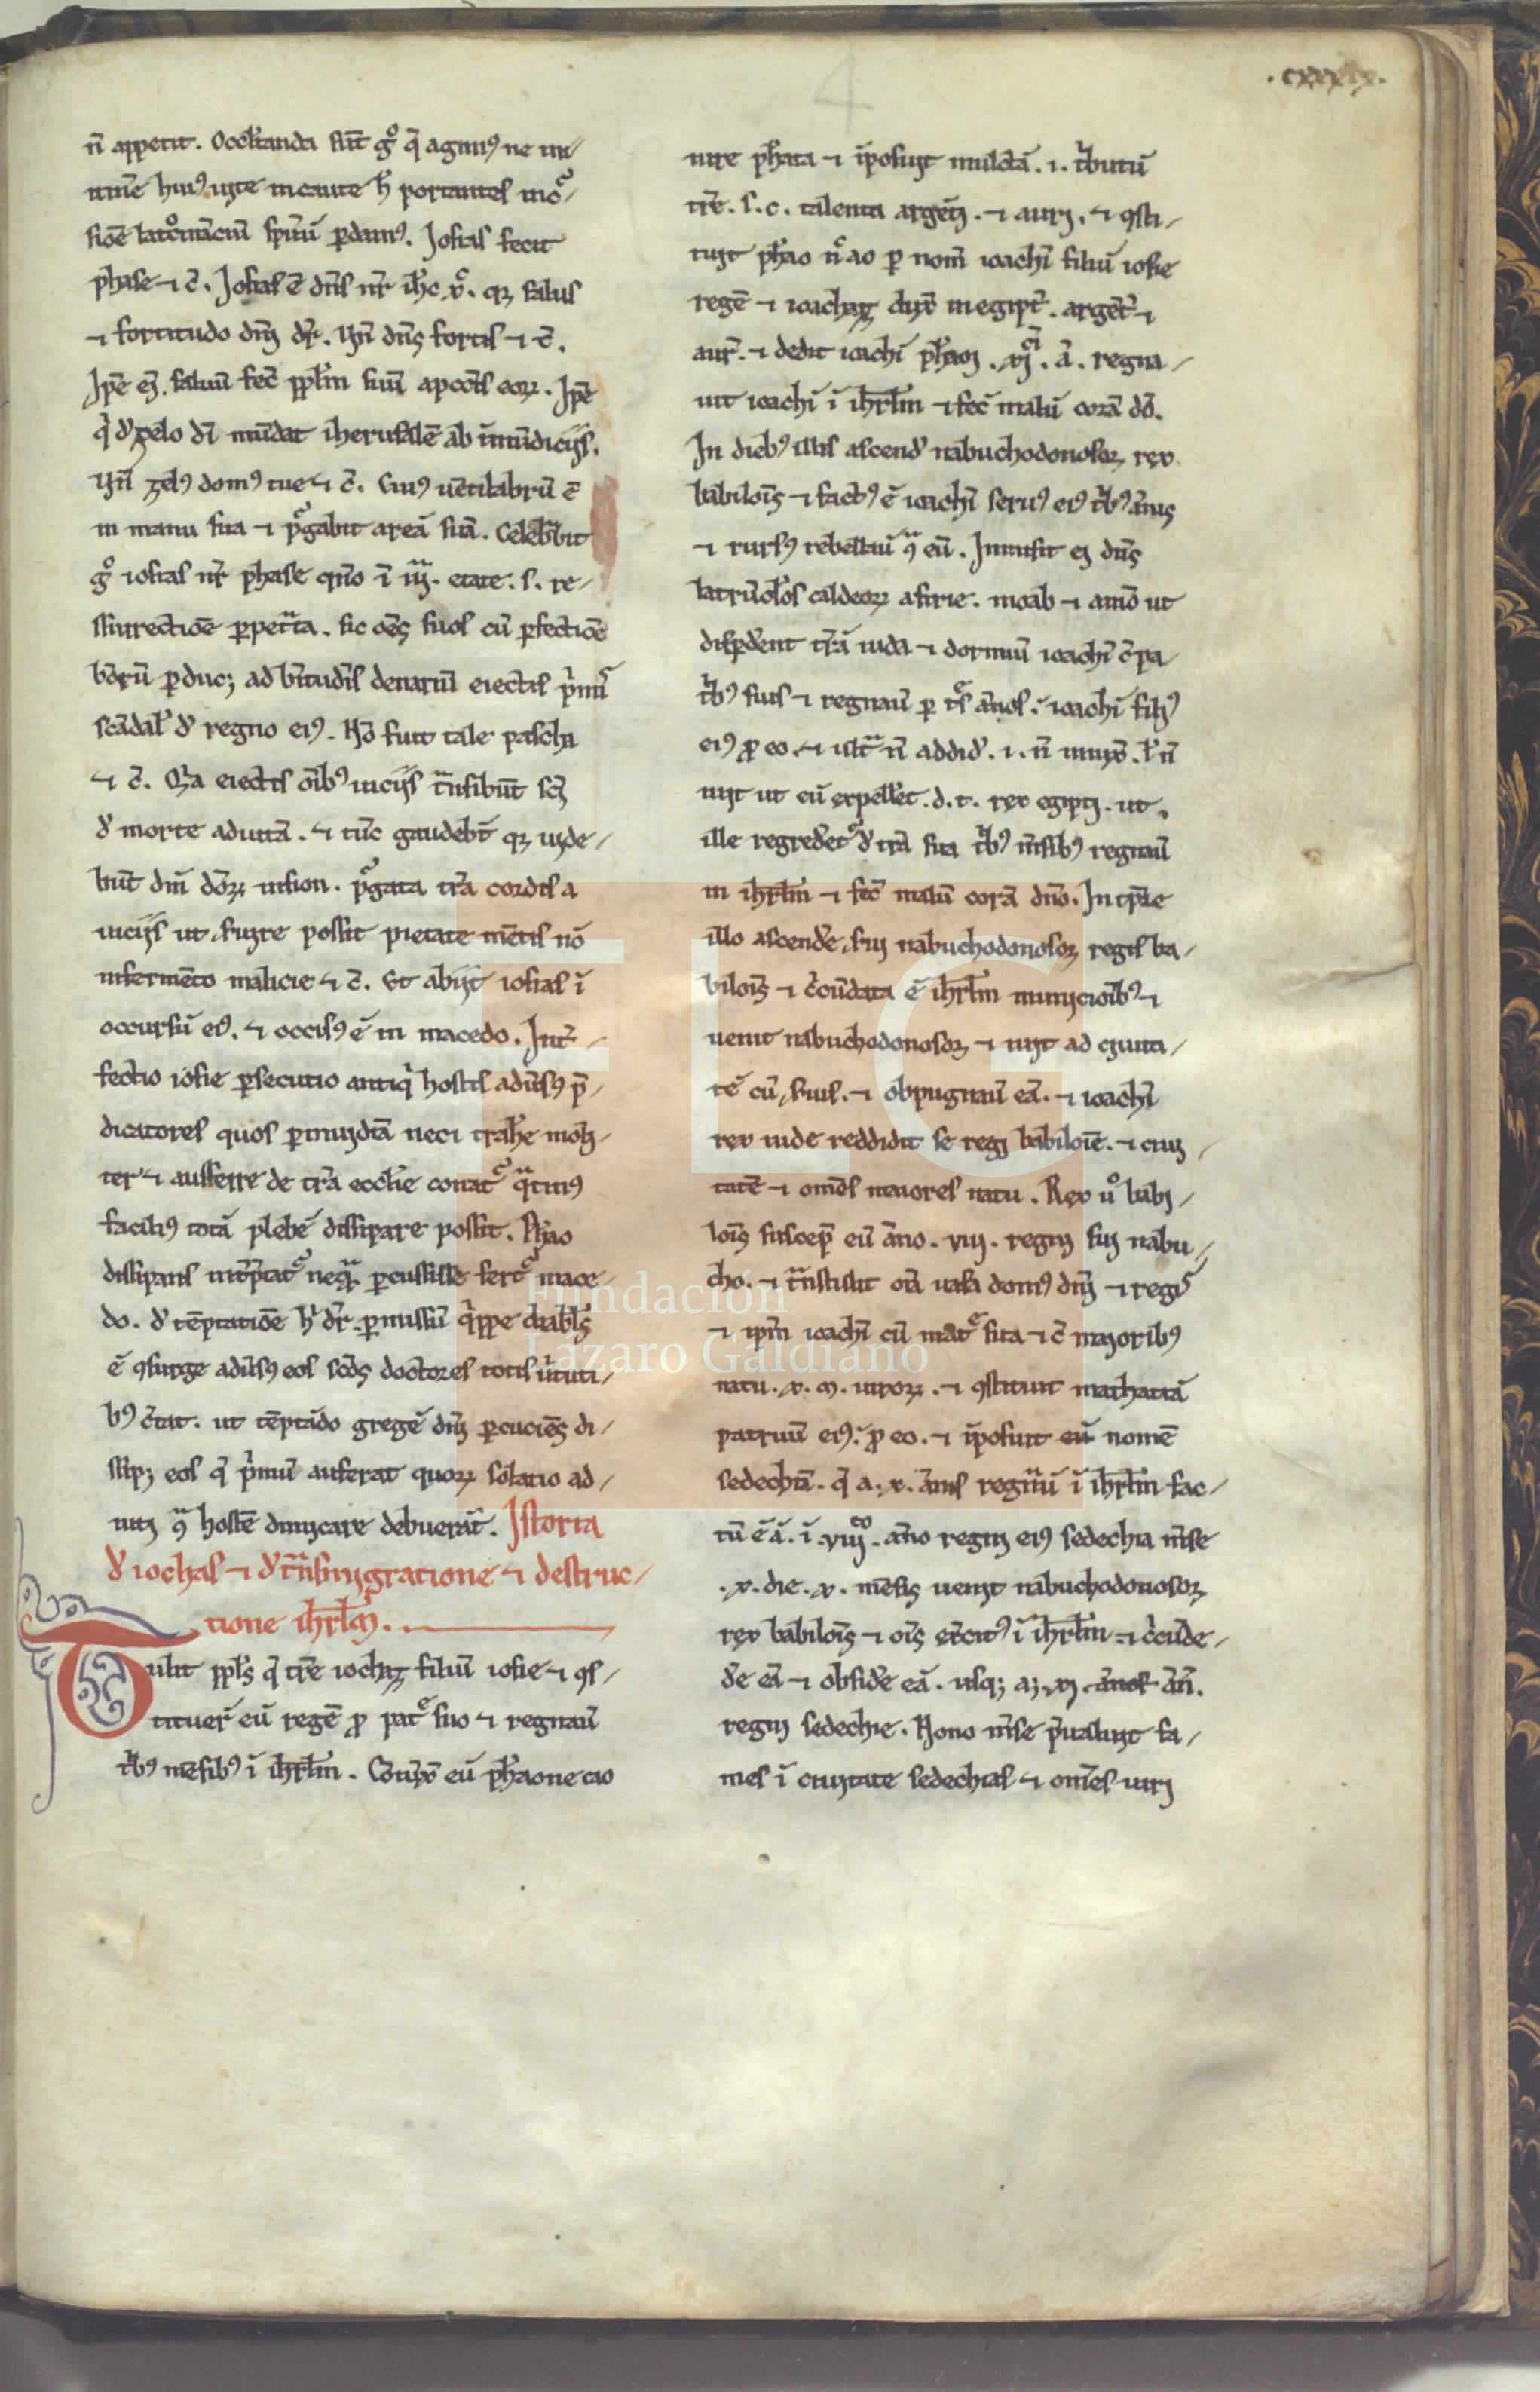 .cxxxix.
4
n̄ appetit. Occl̓tanda sūt gͦ q̄ agimꝰ ne in
itinē huiꝰ uite incaute h̓ portantes
sp̄m̄ ꝑdamꝰ. Josias fecit
phase ⁊ c̄. Josias ē dn̄s nr̄ ih̄c xͬ. qꝫ salus
⁊ fortitudo dn̄j dr̄. Vn̄ dn̄s fortis ⁊ c̄.
Jpē eī saluū fec̄ ppl̄m suū a pcc̄is eoꝝ. Jpē
qͥ ꝺ zelo dī mūdat iherusalē ab īmūdicijs.
Vn̄ zelꝰ domꝰ tue ⁊ c̄. Cuiꝰ uētilabrū ē
in manu sua ⁊ pͬgabit areā suā. Celebͣbit
gͦ iosias nr̄ phase qn̄o ī iiijͣ. etate. s. re/
ssurectiōe ꝑpetͣa. sic oēs suos cū ꝑfectiōe
ꝑduc; ad denariū eiectis
scādal̓ ꝺ regno eiꝰ. Nō fuit tale pascha
⁊ c̄. Qͥa eiectis oībꝰ uicijs tͣnsibūt sc̄j
ꝺ morte ad uitā. ⁊ tūc gaudebt̄ qꝫ uide/
būt dm̄ dōꝝ in sion. pͬgata tr̄a cordis a
uicijs ut suire possit pietate mētis nō
in fermēto malicie ⁊ c̄. Et abijt iosias ī
occursū eiꝰ. ⁊ occisꝰ ē in macedo. Int̓/
fectio iosie ꝑsecutio antiqͥ hostis adūsꝰ p̄/
dicatores quos ꝑ inuidiā neci trah̓e
ter ⁊ aufferre de tr̄a eccl̓ie conatͬ qͣtinꝰ
faciliꝰ totā plebē dissipare possit. Nͣhao
dissipans int̓p̄tatͬ neqͣ ꝑcussisse fertͬ mace/
do. ꝺ tēptatiōe h̓ dr̄. ꝑmissū qͥppe diabl̓s
ē ꝯsurge adūsꝰ eos sc̄ōs doctores totis uͥtuti/
bꝰ c̄tat. ut tēptādo gregē dn̄j ꝑcuciēs di/
ssip; eos q̄ pͥmū auferat quoꝝ solatio ad/
uīꝫ ꝯͣ hostē dimicare debuerāt. Jstoria
ꝺ iochas ⁊ ꝺ tͣnsmigratione ⁊ destruc/
tione ih̄rl̄m.
Tulit ppl̄s q̄ tr̄e iochaz filiū iosie ⁊ ꝯs/
tituer̄ eū regē ꝓ patͬ suo ⁊ regnauͥ
tͥbꝰ mēsibꝰ ī ih̄rl̄m. Cōiūx̄ eū ph̄aone cao
nire ph̄ata ⁊ īposuit mulctā. i. tͥbutū
tr̄e. s. c. talenta argēti. ⁊ auri. ⁊ ꝯsti/
tuit ph̄ao nͦ ao ꝑ nom̄ ioachī filiū iosie
regē ⁊ ioachaz duxͥ in egipt̄. argēt̄ ⁊
aur̄. ⁊ dedit ioachī ph̄aoi. xjͨͥ. ā. regna/
uit ioachī ī ih̄rl̄m ⁊ fec̄ malū corā dō.
In diebꝰ illis ascenꝺ nabuchodonosoꝝ rex
babiloīs ⁊ factꝰ ē ioachī seruꝰ eiꝰ tͥbꝰ ānis
⁊ rursꝰ rebellauͥ ꝯͣ eū. Inmisit ei dn̄s
latrūcl̓os caldeoꝝ asirie. moab ⁊ amō ut
disꝑꝺent tr̄ā iuda ⁊ dormiuͥ ioachī c̄ pa/
tͥbꝰ suis ⁊ regnauͥ ꝑ tͬs ānos. ioachī filiꝰ
eiꝰ ꝓ eo. ⁊ ultͣ n̄ addiꝺ. i. n̄ iunx̄. l̓ n̄
iuit ut eū expell̓et. d. t. rex egipti. ut
ille regreꝺetͬ ꝺ tr̄a sua tͥbꝰ m̄sibꝰ regnauͥ
in ih̄rl̄m ⁊ fec̄ malū corā dn̄o. In tp̄re
illo ascenꝺe sui nabuchodonosoꝝ regis ba/
biloīs ⁊ cͥcūdata ē ih̄rl̄m municioībꝰ ⁊
uenit nabuchodonosoꝝ ⁊ iuit ad ciuita/
tē cū suis. ⁊ obpugnauͥ eā. ⁊ ioachī
rex iude reddidit se regi babiloīe. ⁊ ciui/
tatē ⁊ omēs maiores natu. Rex uͦ babi/
loīs suscep̄ eū āno. viij. regni sui nabu/
cho. ⁊ tͣnstulit oīa uasa domꝰ dn̄j ⁊ regiͬ
⁊ ipm̄ ioachī cū matͬ sua ⁊ c̄ maioribꝰ
natu. x. m. uiroꝝ. ⁊ ꝯstituit mathaniā
patruū eiꝰ. ꝓ eo. ⁊ īposuit eū nomē
sedechiā. q̄ a. x. ānis regnauͥ ī ih̄rl̄m fac/
tū ē ā. ī. viiijͨͦ. āno regni eiꝰ sedechia m̄se
.x. die. x. mēsis uenit nabuchodonosoꝝ
rex babiloīs ⁊ oīs ex̄citꝰ ī ih̄rl̄m ⁊ cͥcūde/
ꝺe eā ⁊ obsiꝺe eā. usq; a; xj. ān̄.
regni sedechie. Nono m̄se p̄ualuit fa/
mes ī ciuitate sedechias ⁊ omēs uiri
FLG
Fundación
Lázaro Galdiano